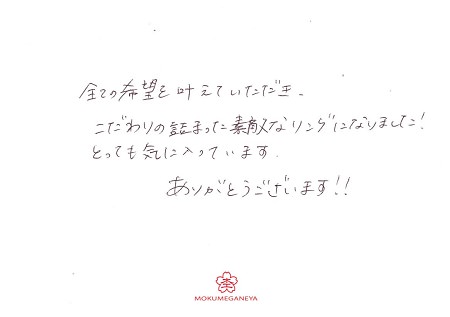 全ての希望を叶えていただき、
こだわりの詰まった素敵なリングになりました!
とっても気に入っています。
ありがとうございます!!
MOKUMEGANEYA